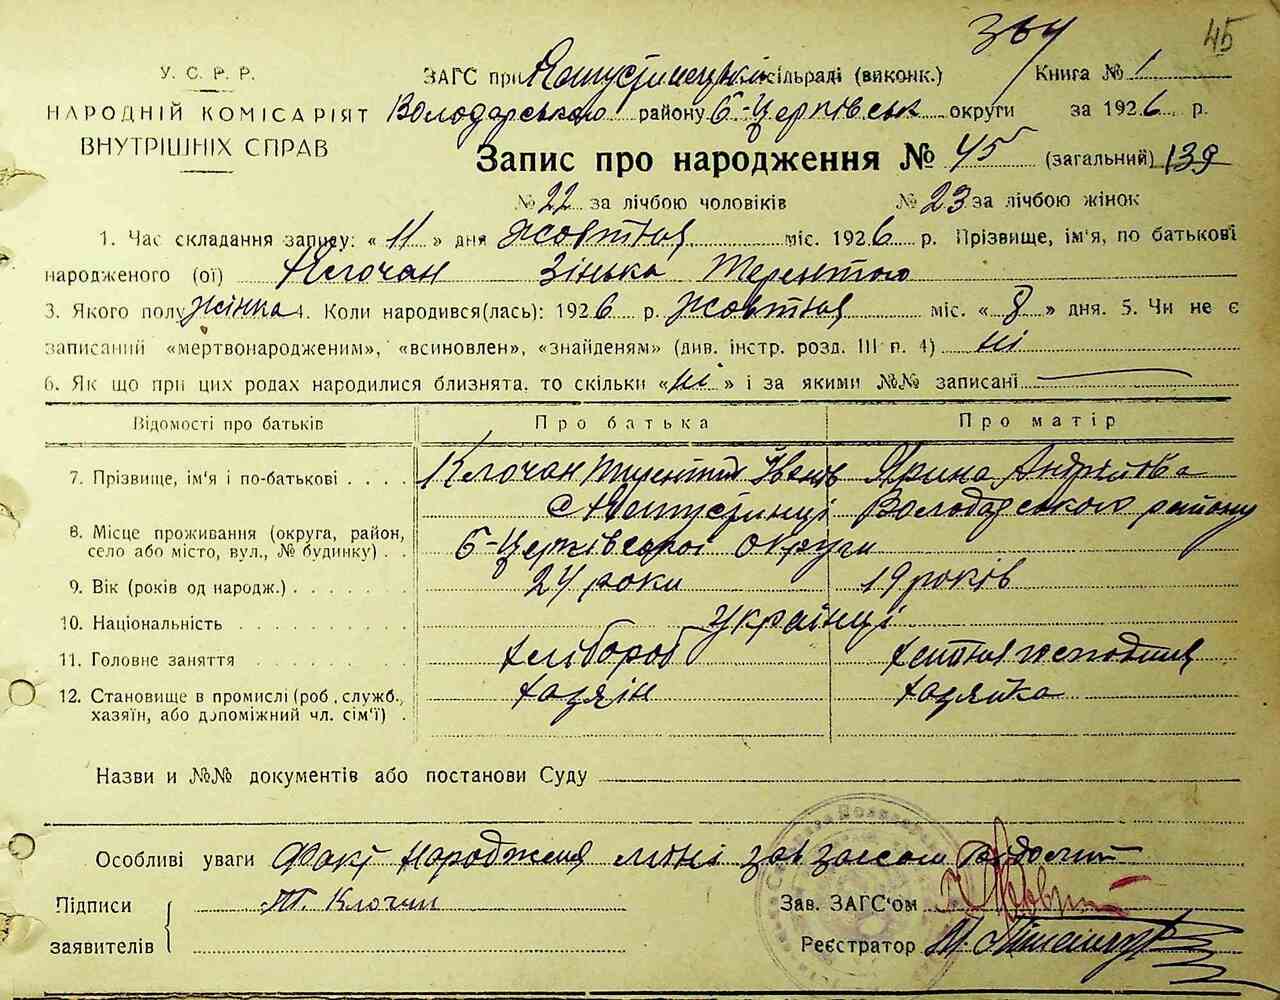 364
45
У. С. Р. Р.
НАРОДНІЙ КОМІСАРІЯТ
ВНУТРІШНІХ СПРАВ
ЗАГС при сільраді (виконк.) Книга № 1
Володарського району Б-Церківськ округи за 1926 р.
Запис про народження № 45 (загальний) 139
№ 22 за лічбою чоловіків № 23 за лічбою жінок
1. Час складання запису: « 11 » дня Жовтня міс. 1926 р. Прізвище, ім'я, по батькові
народженого (ої) Клочан Зінька Терентіо
3. Якого полу жінка 4. Коли народився(лась): 1926 р. Жовтня міс. « 8 » дня. 5. Чи не є
записаний «мертвонародженим», «всиновлен», «знайденям» (див. інстр. розд. III п. 4) ні
6. Як що при цих родах народилися близнята, то скільки « ні » і за якими №№ записані
Відомості про батьків Про батька Про матір
7. Прізвище, ім'я і по-батькові . . . . Клочан Терентій Іванів Ярина Андрійова
8. Місце проживання (округа, район, село або місто, вул., № будинку) . . с. Володарського району
Б-Церківської округи
9. Вік (років од народж.) . . . . . . 24 роки 19 років
10. Національність . . . . . . . . . Українці
11. Головне заняття . . . . . . . . хлібороб хатня господиня
12. Становище в промислі (роб., служб., хазяїн, або допоміжний чл. сім'ї) . хазяїн хазяйка
Назви и №№ документів або постанови Суду
Особливі уваги Факт народженя мені зав загсом
Підписи
заявителів
Т. Клочан
Зав. ЗАГС'ом
Реєстратор